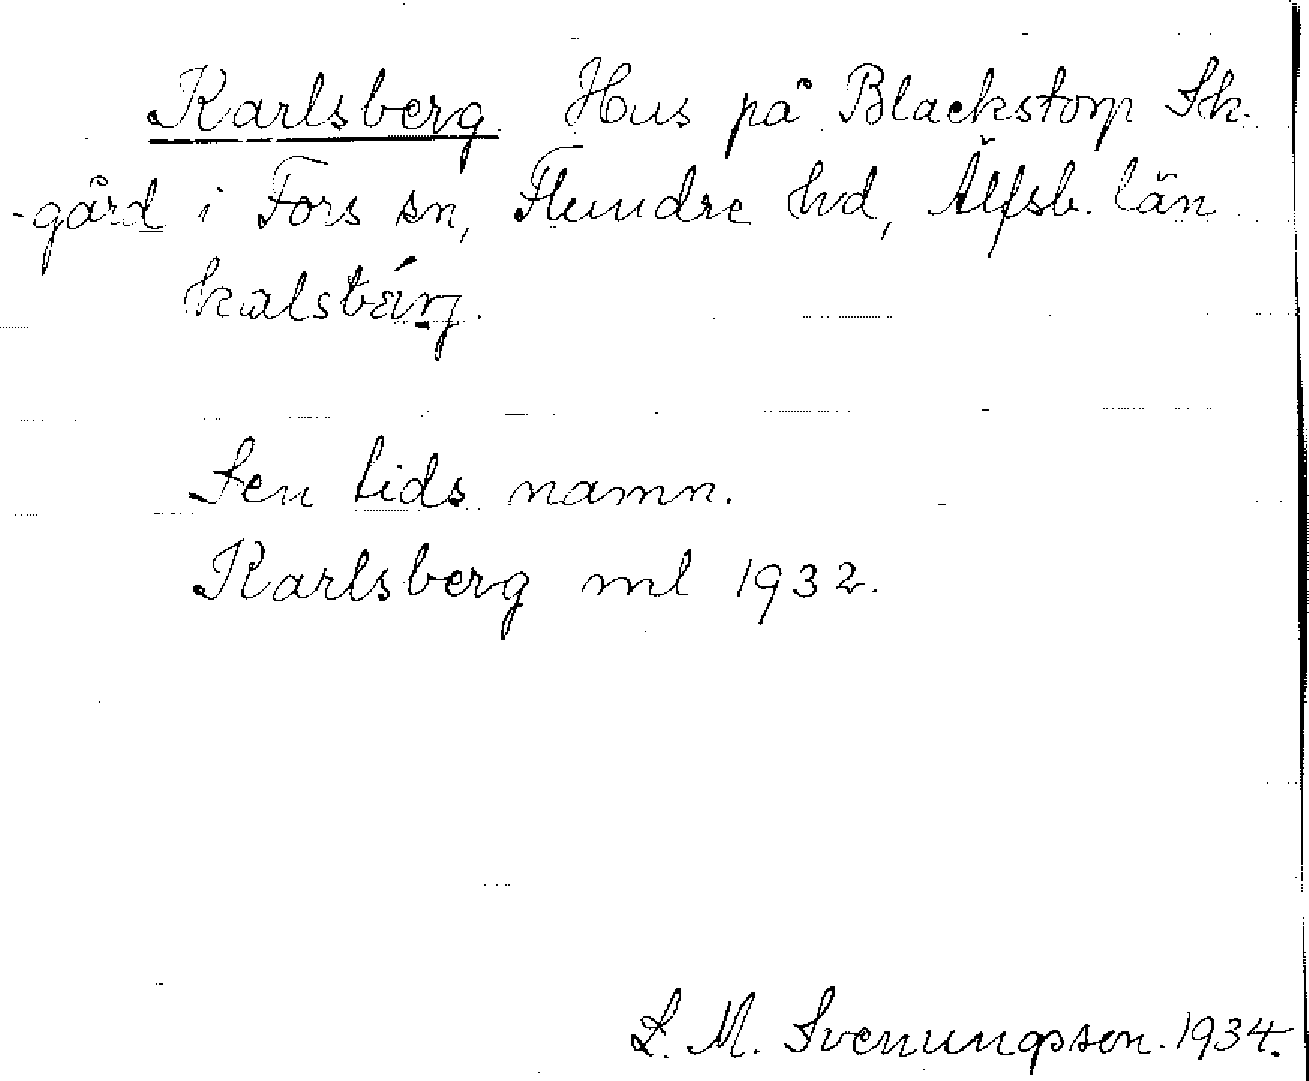 Karlsberg Hus på Blackstorp Sk-
-gård i Fors sn, Flundre hd, Älfsb. län
kalsbärj.
Sen tids namn.
Karlsberg ml 1932.
S. M. Svenungsson. 1934.